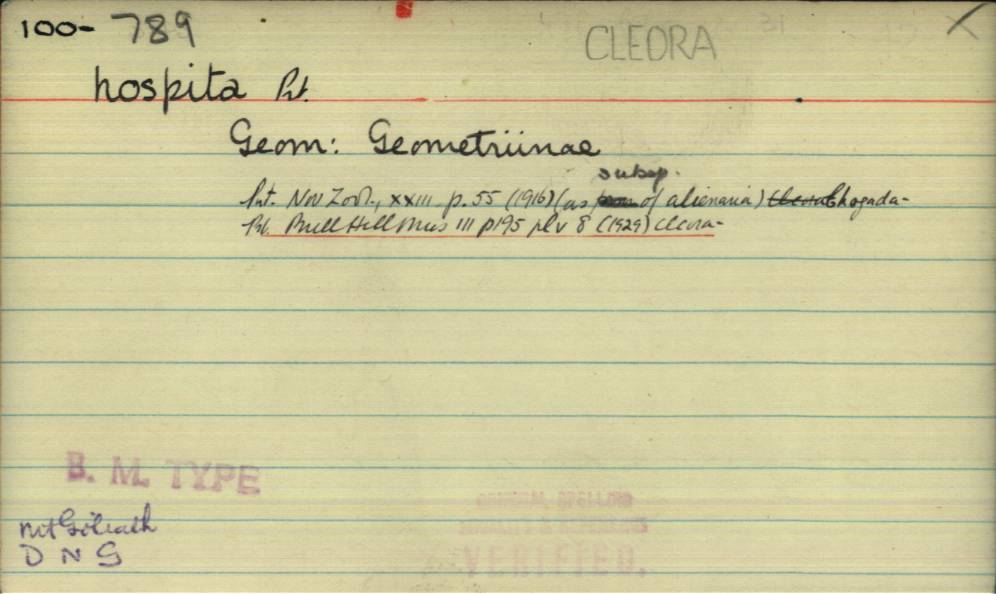 100-789
CLEORA
hospita Prt.
Geom: Geometriinae
subsp.
Prt. Nov Zool., XXIII p. 55 (1916) (as of alienaria) Chogada-
Prt. Bull Hill Mus III p195 pl v 8 (1929) Cleora-
B. M. TYPE
Mt Goliath
D N G
ORIGINAL SPELLING
VERIFIED.